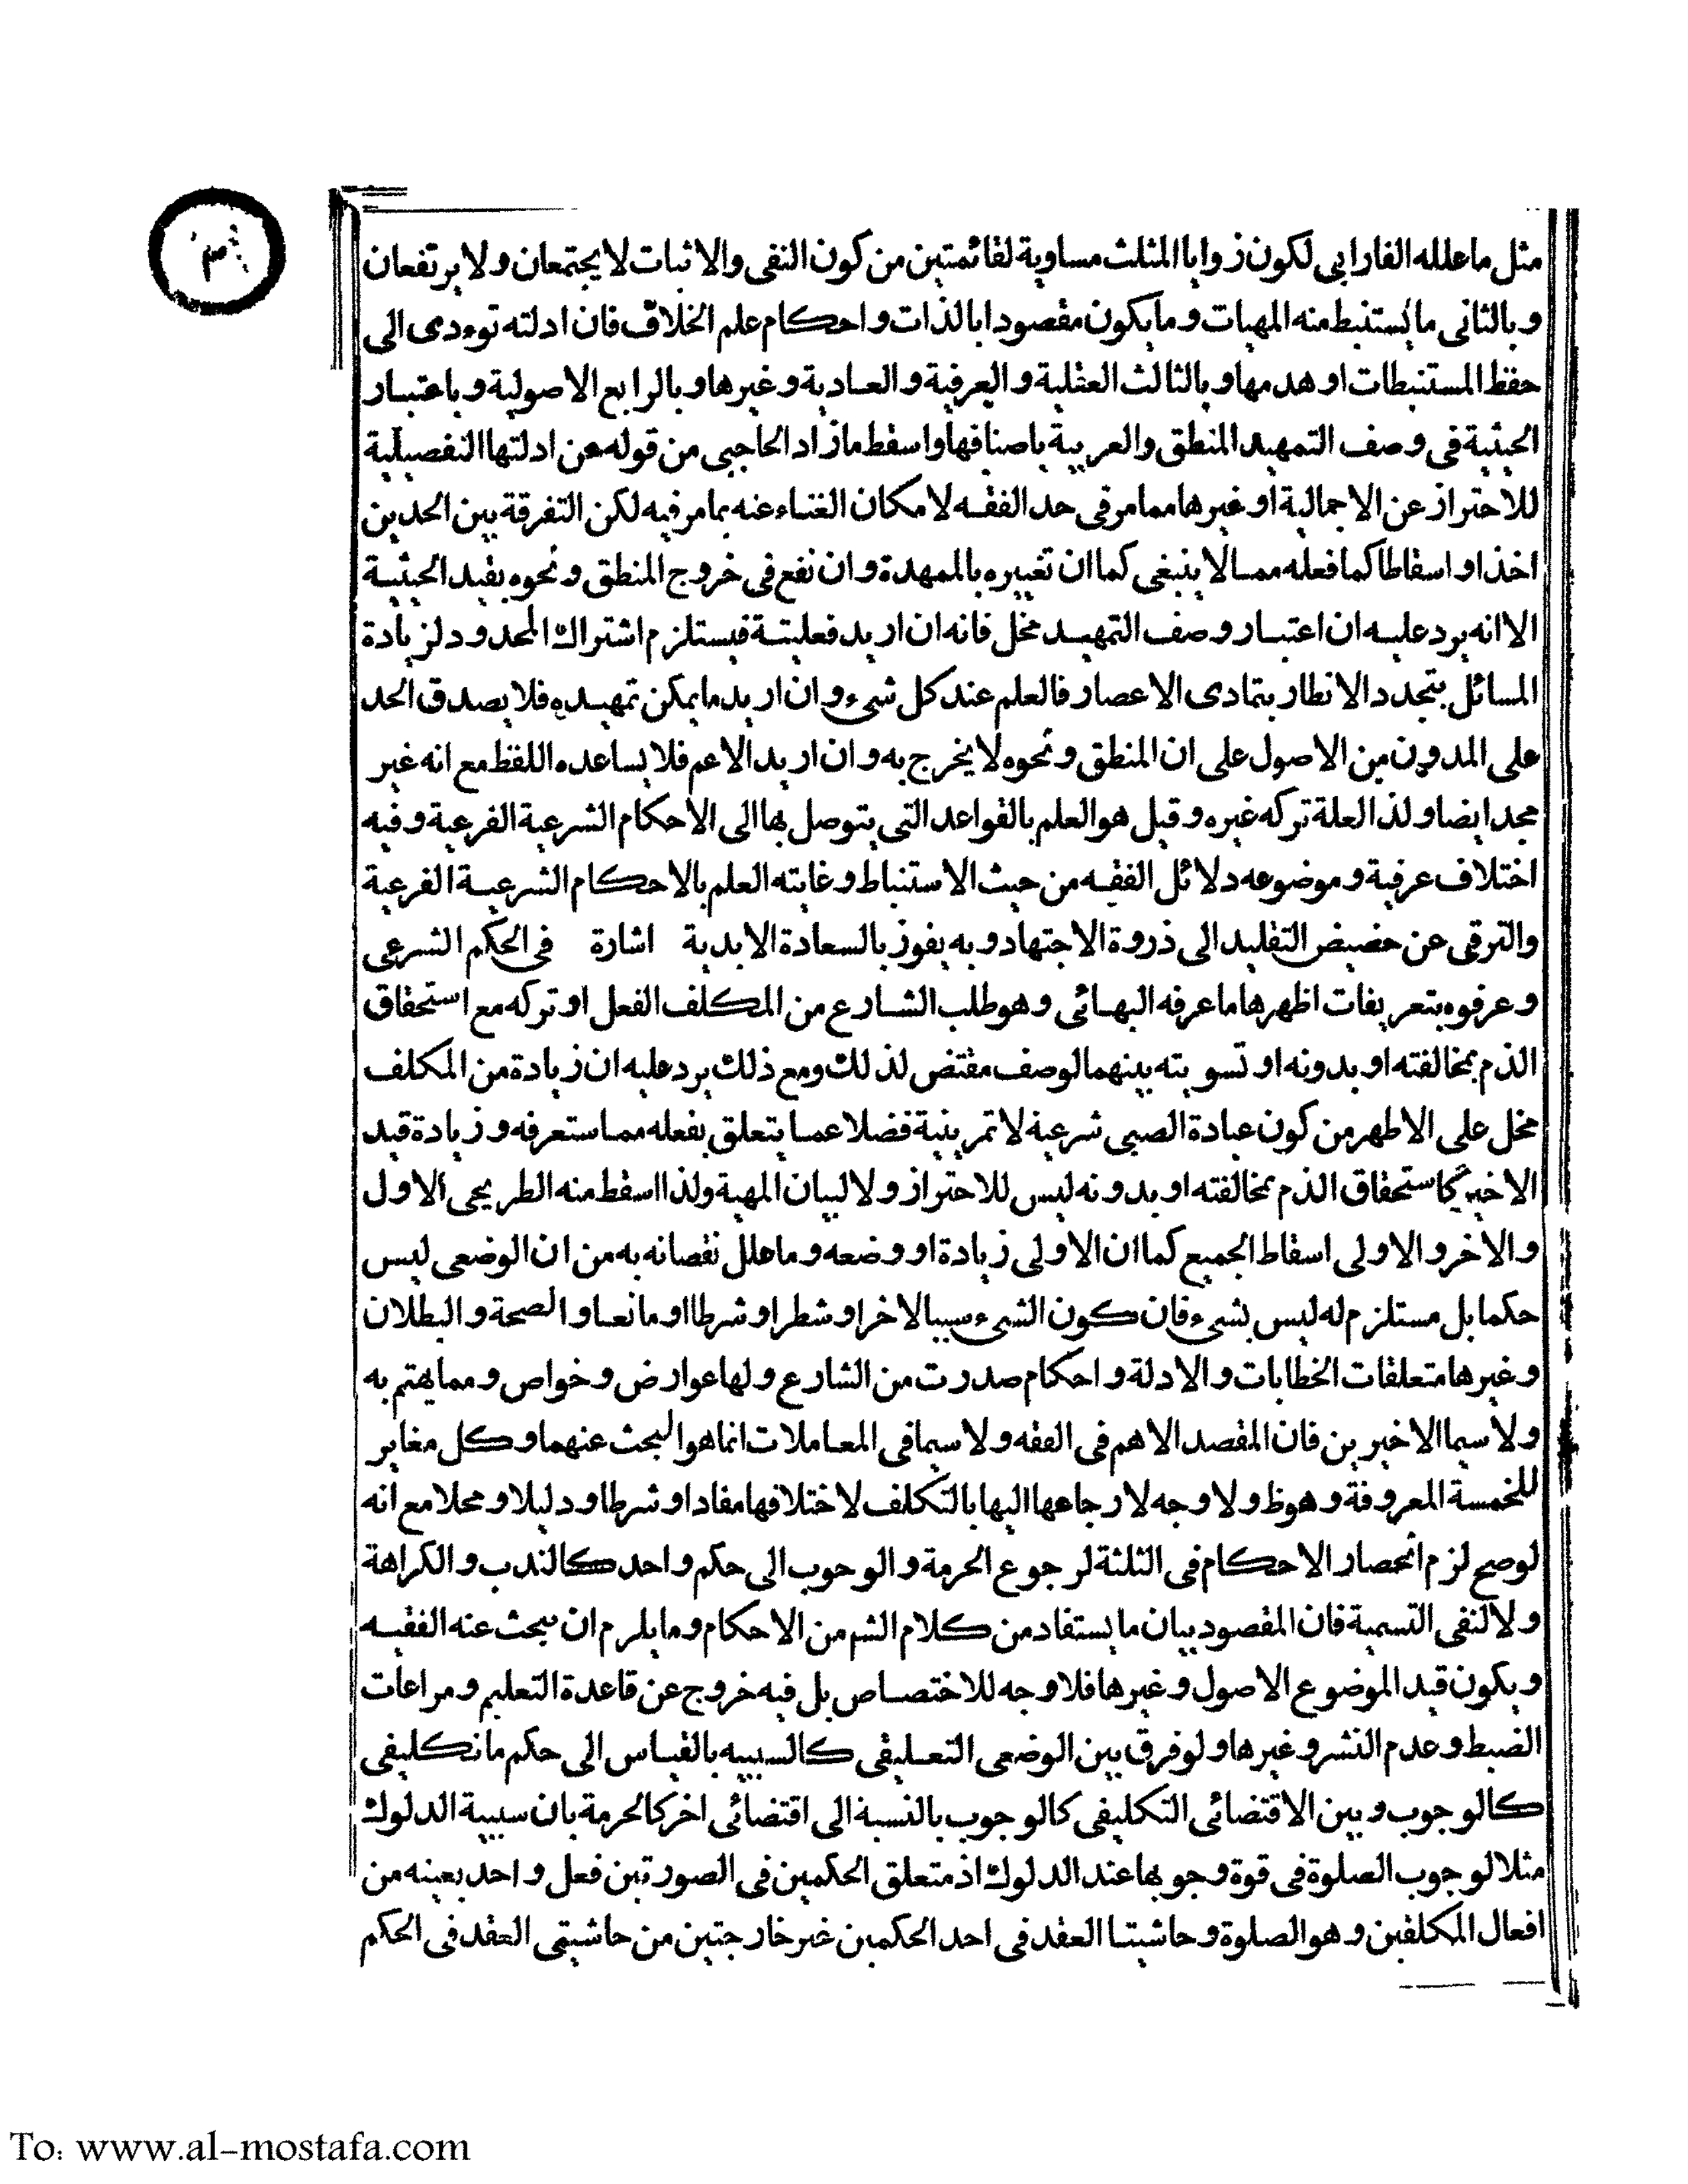 ٣
مثل ما علله الفارابي لكون زوايا المثلث مساوية لقائمتين من كون النفى والاثبات لا يجتمعان ولا يرتفعان
وبالثانى ما يستنبط منه المهيات وما يكون مقصودا بالذات واحكام علم الخلاف فان ادلته توءدى الى
حفظ المستنبطات او هدمها وبالثالث العقلية والعرفية والعادية وغيرها وبالرابع الاصولية وباعتبار
الحيثية فى وصف التمهيد المنطق والعربية باصنافها واسقط ما زاد الحاجبى من قوله عن ادلتها التفصيلية
للاحتراز عن الاجمالية او غيرها مما مر فى حد الفقه لامكان الغناء عنه بما مر فيه لكن التفرقة بين الحدين
اخذا واسقاطا كما فعله مما لا ينبغى كما ان تغييره بالممهدة وان نفع فى خروج المنطق ونحوه بقيد الحيثية
الا انه يرد عليه ان اعتبار وصف التمهيد مخل فانه ان اريد فعليتة فيستلزم اشتراك المحدود لزيادة
المسائل بتجدد الانظار بتمادى الاعصار فالعلم عند كل شىء وان اريد ما يمكن تمهيده فلا يصدق الحد
على المدون من الاصول على ان المنطق ونحوه لا يخرج به وان اريد الاعم فلا يساعده اللفظ مع انه غير
مجد ايضا ولذا العلة تركه غيره وقيل هو العلم بالقواعد التى يتوصل بها الى الاحكام الشرعية الفرعية وفيه
اختلاف عرفية وموضوعه دلائل الفقه من حيث الاستنباط وغايته العلم بالاحكام الشرعية الفرعية
والترقى عن حضيض التقليد الى ذروة الاجتهاد وبه يفوز بالسعادة الابدية اشارة فى الحكم الشرعى
وعرفوه بتعريفات اظهرها ما عرفه البهائى وهو طلب الشارع من المكلف الفعل او تركه مع استحقاق
الذم بمخالفته او بدونه او تسويته بينهما لوصف مقتض لذلك ومع ذلك يرد عليه ان زيادة من المكلف
مخل على الاطهر من كون عبادة الصبى شرعية لا تمرينية فضلا عما يتعلق بفعله مما ستعرفه وزيادة قيد
الاخير كاستحقاق الذم بمخالفته او بدونه ليس للاحتراز ولا لبيان المهية ولذا اسقط منه الطريحى الاول
والاخر والاولى اسقاط الجميع كما ان الاولى زيادة او وضعه وما علل نقصانه به من ان الوضعى ليس
حكما بل مستلزم له ليس بشىء فان كون الشىء سببا لاخر او شطرا او شرطا او مانعا والصحة والبطلان
وغيرها متعلقات الخطابات والادلة واحكام صدرت من الشارع ولها عوارض وخواص ومما يهتم به
ولا سيما الاخيرين فان المقصد الاهم فى الفقه ولا سيما فى المعاملات انما هو البحث عنهما وكل مغاير
للخمسة المعروفة وهو ظ ولا وجه لارجاعها اليها بالتكلف لاختلافها مفادا وشرطا ودليلا ومحلا مع انه
لو صح لزم انحصار الاحكام فى الثلثة لرجوع الحرمة والوجوب الى حكم واحد كالندب والكراهة
ولا لنفى التسمية فان المقصود بيان ما يستفاد من كلام الشم من الاحكام وما يلزم ان يبحث عنه الفقيه
ويكون قيد الموضوع الاصول وغيرها فلا وجه للاختصاص بل فيه خروج عن قاعدة التعليم ومراعات
الضبط وعدم النشر وغيرها ولو فرق بين الوضعى التعليقى كالسببيه بالقياس الى حكم ما تكليفى
كالوجوب وبين الاقتضائى التكليفى كالوجوب بالنسبة الى اقتضائى اخر كالحرمة بان سببية الدلوك
مثلا لوجوب الصلوة فى قوة وجوبها عند الدلوك اذ متعلق الحكمين فى الصورتين فعل واحد بعينه من
افعال المكلفين وهو الصلوة وحاشيتا العقد فى احد الحكمين غير خارجتين من حاشيتى العقد فى الحكم
To: www.al-mostafa.com